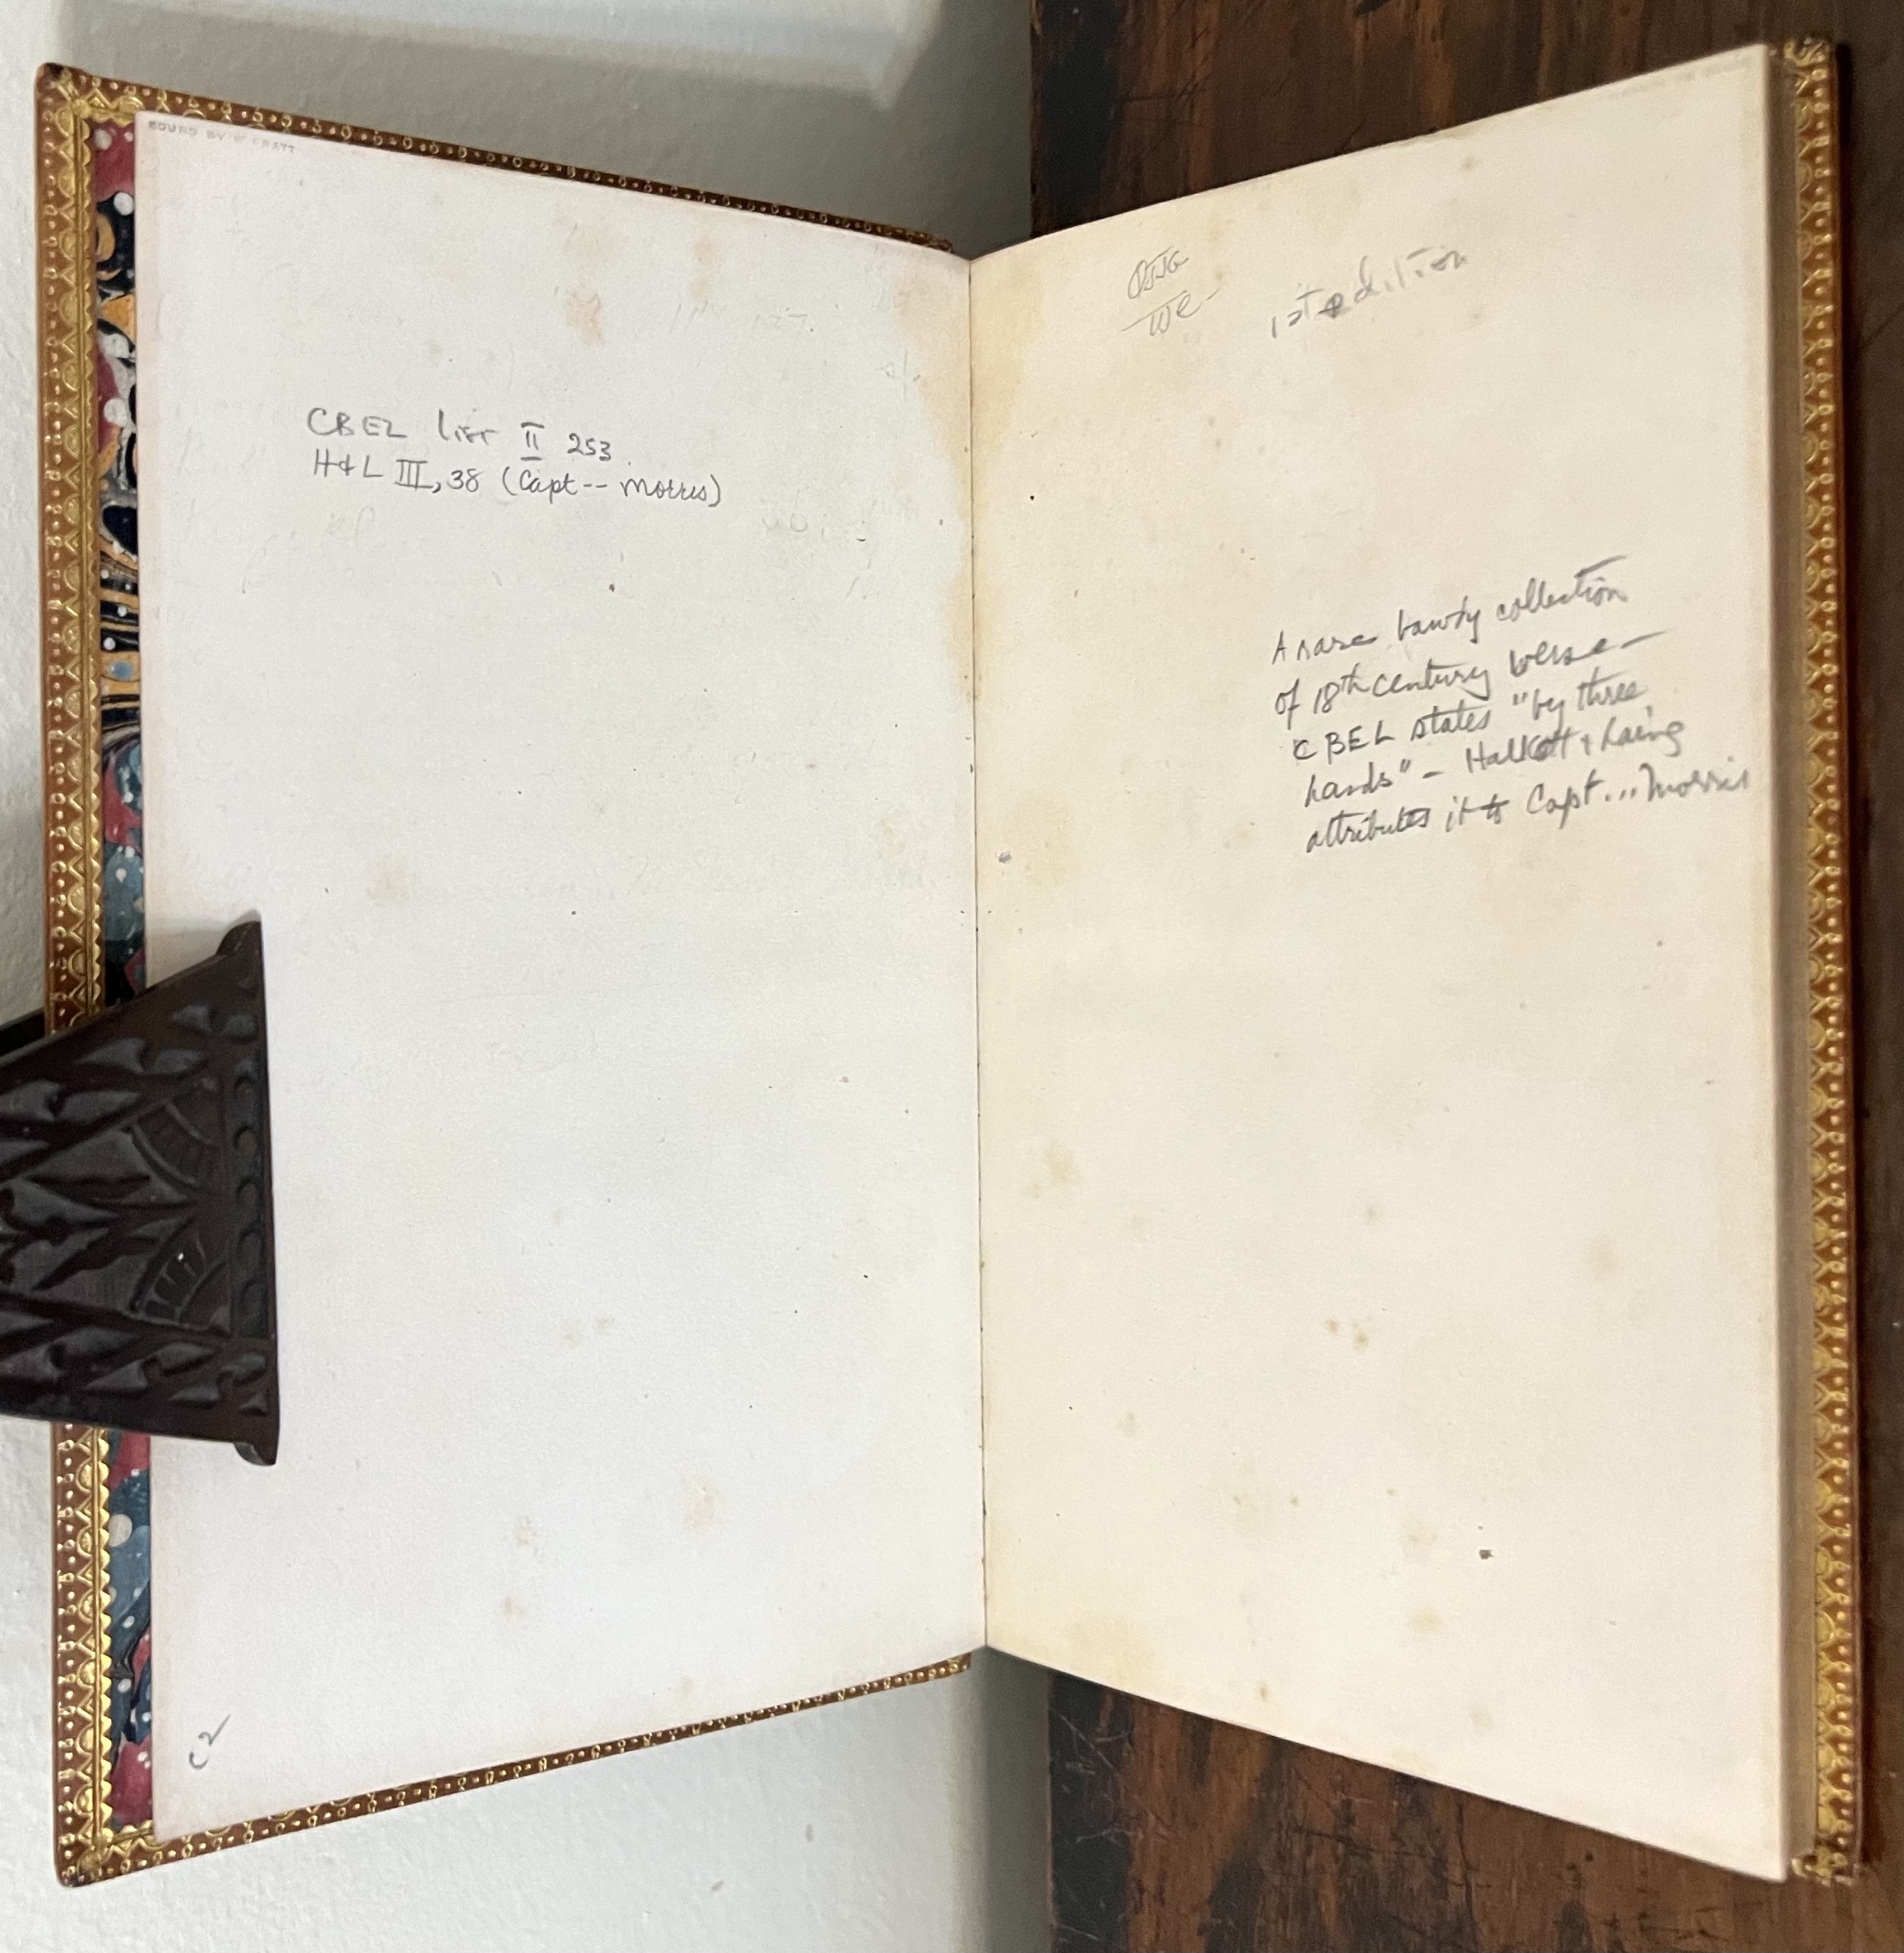 BOUND BY W PRATT
CBEL list II 253
H&L III, 38 (Capt -- Morris)
C2
1st edition
A rare bawdy collection
of 18th century verse—
CBEL states "by three
hands" – Halkett & Laing
attributes it to Capt ... Morris